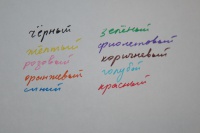 чёрный
жёлтый
розовый
оранжевый
синий
зелёный
фиолетовый
коричневый
голубой
красный